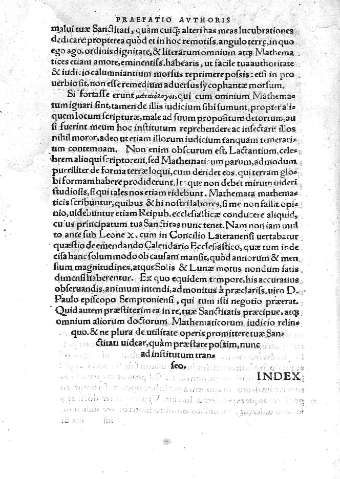 PRAEFATIO AVTHORIS
malui tuæ Sanctitati, quàm cuiquam alteri has meas lucubrationes
dedicare, propterea quòd et in hoc remotiss. angulo terræ, in quo
ego ago, ordinis dignitate, & literarum omnium atq; Mathema
tices etiam amore, eminentiss. habearis, ut facile tua authoritate
& iudicio calumniantium morsus reprimere possis: etsi in pro
uerbio sit, non esse remedium aduersus sycophantæ morsum.
Si fortasse erunt ματαιολόγοι, qui cum omnium Mathema
tum ignari sint, tamen de illis iudicium sibi sumunt, propter ali
quem locum scripturæ, male ad suum propositum detortum, au
si fuerint meum hoc institutum reprehendere ac insectari: illos
nihil moror, adeo ut etiam illorum iudicium tanquam temerari
um contemnam. Non enim obscurum est, Lactantium, cele
brem alioqui scriptorem, sed Mathematicum parum, admodum
pueriliter de forma terræ loqui, cum deridet eos, qui terram glo
bi formam habere prodiderunt. Itaque non debet mirum uideri
studiosis, si qui tales nos etiam ridebunt. Mathemata mathema
ticis scribuntur, quibus & hi nostri labores, si me non fallit opi
nio, uidebuntur etiam Reipub. ecclesiasticæ conducere aliquid,
cuius principatum tua Sanctitas nunc tenet. Nam non ita mul
to ante sub Leone X. cum in Concilio Lateranensi uertabatur
quæstio de emendando Calendario Ecclesiastico, quæ tum inde
cisa hanc solummodo ob causam mansit, quòd annorum & men
sium magnitudines, atque Solis & Lunæ motus nondum satis
dimensi haberentur. Ex quo equidem tempore, his accuratius
obseruandis, animum intendi, admonitus à præclariss. uiro D.
Paulo episcopo Semproniensi, qui tum isti negotio præerat.
Quid autem præstiterim ea in re, tuæ Sanctitatis præcipue, atq;
omnium aliorum doctorum Mathematicorum iudicio relin
quo, & ne plura de utilitate operis promittere tuæ San-
ctitati uidear, quàm præstare possim, nunc
ad institutum tran
seo.
INDEX